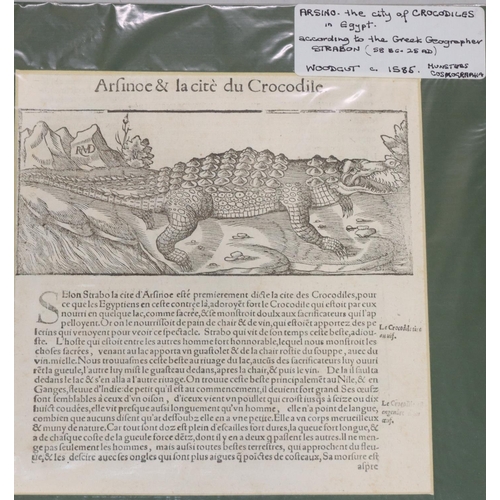 ARSINO - the city of CROCODILES
in Egypt.
according to the Greek Geographer
STRABON (58 BC - 25 AD)
WOODCUT c. 1585. MUNSTERS
COSMOGRAPHIA
Arsinoe & la citè du Crocodile
RMD
SElon Strabo la cite d'Arsinoe estè premierement dicte la cite des Crocodiles, pour
ce que les Egyptiens en ceste contrée là, adoroyēt fort le Crocodile qui estoit par eux
nourri en quelque lac, comme sacrée, & se monstroit doulx aux sacrificateurs qui l'ap
pelloyent. Or on le nourrissoit de pain de chair & de vin, qui estoit apportez des pe
lerins qui venoyent pour veoir ce spectacle. Strabo qui vit de son temps ceste beste, adiou-
ste. L'hoste qui estoit entre les autres homme fort honnorable, lequel nous monstroit les
choses sacrées, venant au lac apporta vn gastolet & de la chair rostie du souppe, auec du
vin mielle. Nous trouuasmes ceste beste au riuage du lac, aucūs des sacrificateurs luy ouuri
rēt la gueule, l'autre luy mist le guasteau dedans, apres la chair, & puis le vin. De là il saulta
dedans le lac & s'en alla a l'autre riuage. On trouue ceste beste principalemēt au Nile, & en
Ganges, fleuue d'Inde: de petit qu'il est au commencement, il deuient fort grand. Ses œufz
sont semblables à ceux d'vn oison, d'iceux vient vn poullet qui croist iusqs à seize ou dix
huict coudées, elle vit presque aussi longuement qu'vn homme, elle n'a point de langue,
combien que aucuns disent qu'at dessoubz elle en a vne petite. Elle a vn corps merueilleux
& muny de nature. Car tout sont doz est plein d'escailles fort dures, la queue fort longue, &
a de chasque coste de la gueule force dētz, dont il y en a deux q̄ passent les autres. Il ne men-
ge pas seulement les hommes, mais aussi toutes bestes terrestres, qui approchent du fleu-
ue, & les descire auec ses ongles qui sont plus aigues q̄ poictes de costeaux, Sa morsure est
aspre
Le Crocodile